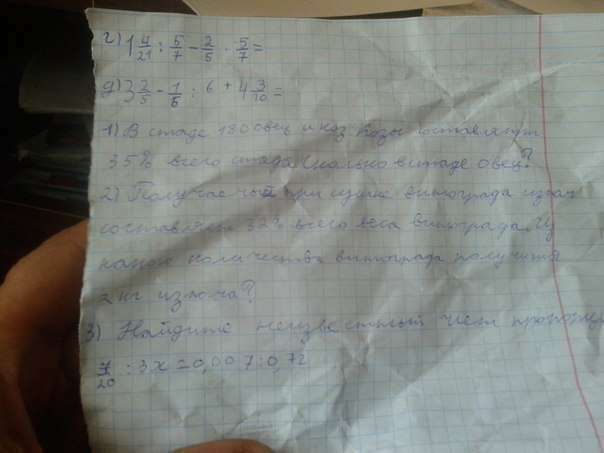 г) 1 4/21 : 5/7 - 2/5 · 5/7 =
д) 3 2/5 - 1/5 : 6 + 4 3/10 =
1) В стаде 180 овец и коз Козы составляют
35% всего стада. Сколько в стаде овец?
2) при сушке винограда изюм
составляет 32% всего веса винограда. Из
какого количества винограда получить
2 кг изюма?
3) Найдите неизвестный член пропорци
7/20 : 3x = 0,007 : 0,72